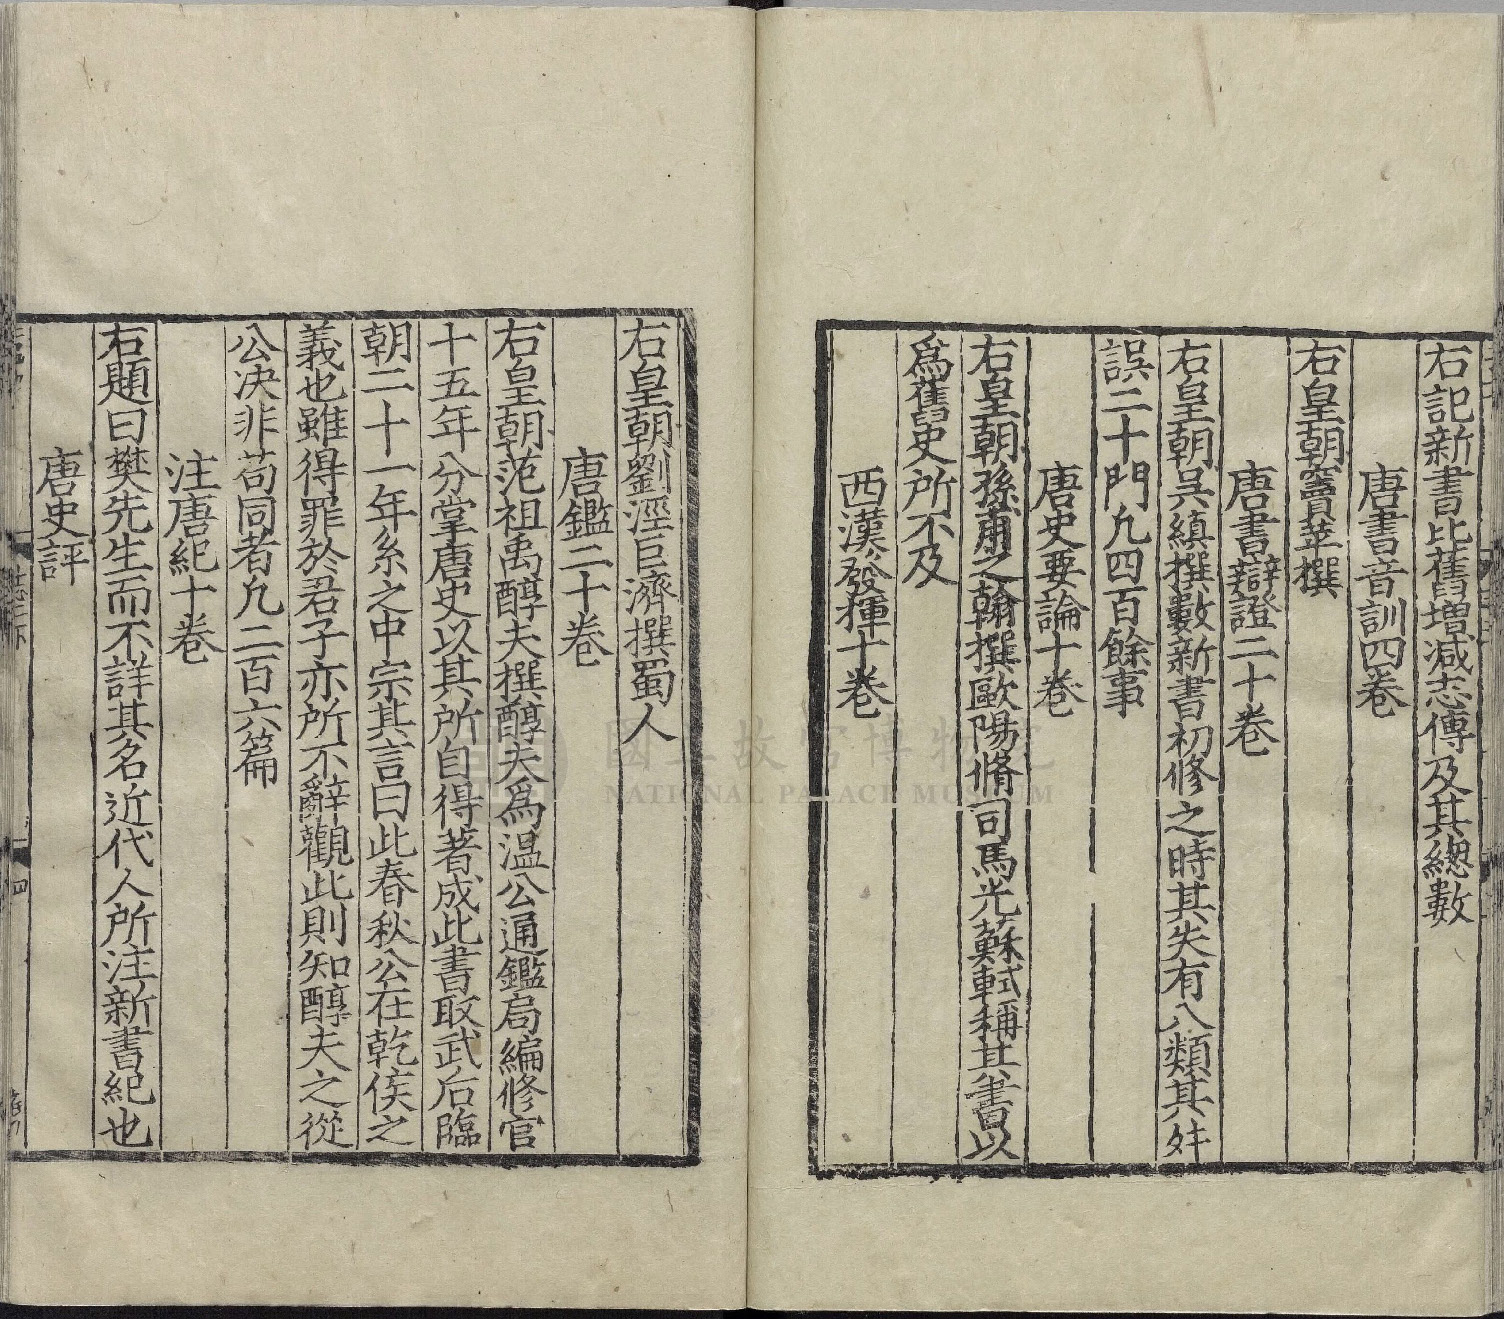 右記新書比舊增減志傳及其總數
唐書音訓四卷
右皇朝竇苹撰
唐書辯證二十卷
右皇朝吳縝撰數新書初修之時其失有八類其舛
誤二十門凡四百餘事
唐史要論十卷
右皇朝孫甫之翰撰歐陽脩司馬光蘇軾稱其書以
爲舊史所不及
西漢發揮十卷
右皇朝劉涇巨濟撰蜀人
唐鑑二十卷
右皇朝范祖禹醇夫撰醇夫爲溫公通鑑局編修官
十五年分掌唐史以其所自得著成此書取武后臨
朝二十一年系之中宗其言曰此春秋公在乾侯之
義也雖得罪於君子亦所不辭觀此則知醇夫之從
公決非苟同者凡二百六篇
注唐紀十卷
右題曰樊先生而不詳其名近代人所注新書紀也
唐史評
四
國立故宮博物院
NATIONAL PALACE MUSEUM